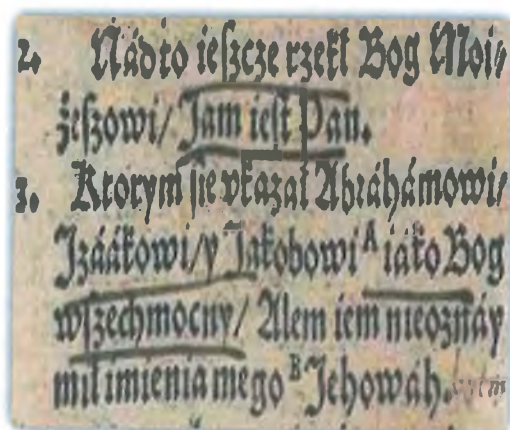 2. Nádto ieſzcze rzekł Bog Moi⸗
żeſzowi/ Jam ieſt Pan.
3. Ktorym ſie vkazał Abráhámowi/
Jzáákowi/ y Jakobowi ᴬ iáko Bog
wſzechmocny/ Alem iem nieoznáy
mił imienia mego ᴮ Jehowáh.